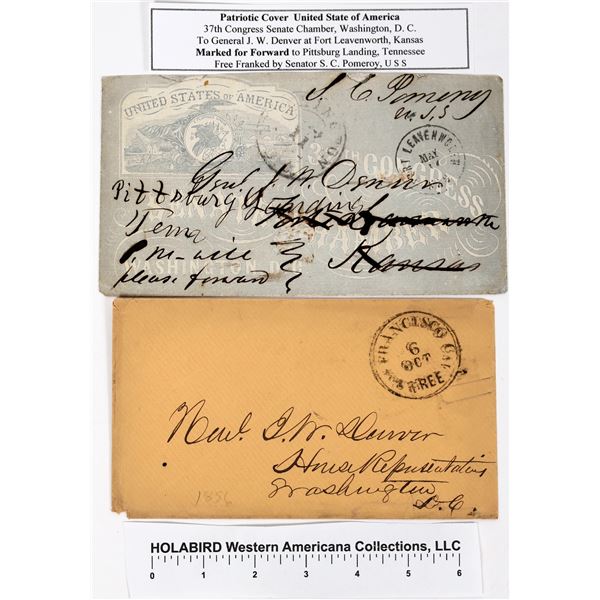 Patriotic Cover United State of America
37th Congress Senate Chamber, Washington, D. C.
To General J. W. Denver at Fort Leavenworth, Kansas
Marked for Forward to Pittsburg Landing, Tennessee
Free Franked by Senator S. C. Pomeroy, U S S
S. C. Pomeroy
U.S.S
UNITED STATES OF AMERICA
CONGRESS
FORT LEAVENWO
MAY
Genl J. W. Denver
Pittsburg Landing
Tenn
Kansas
WASHINGTON D.C.
please forward
FRANCISCO CAL
6
OCT
FREE
Hon. J. W. Denver
House Representatives
Washington
D.C.
1856
HOLABIRD Western Americana Collections, LLC
0 1 2 3 4 5 6